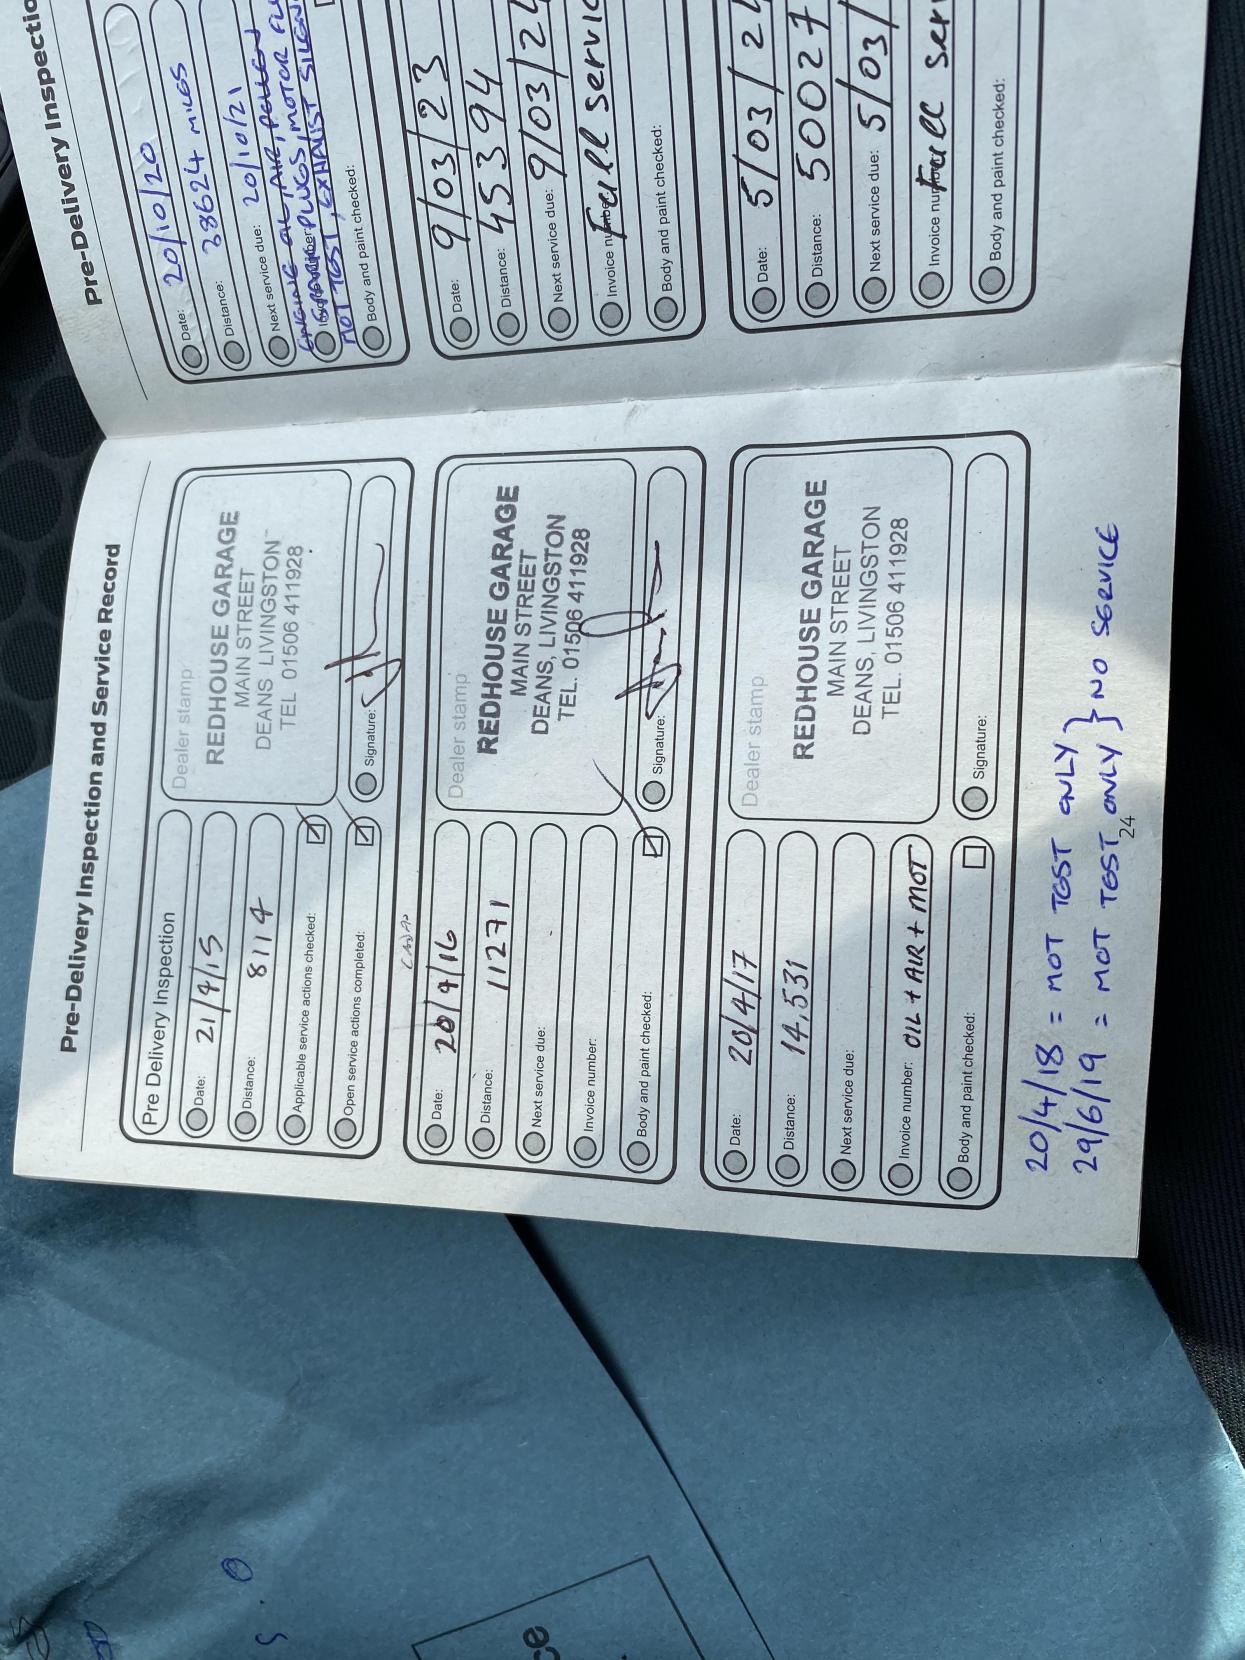 Pre-Delivery Inspection and Service Record
Pre Delivery Inspection
Date: 21/4/15
Distance: 8114
Applicable service actions checked:
Open service actions completed:
Dealer stamp
REDHOUSE GARAGE
MAIN STREET
DEANS LIVINGSTON
TEL 01506 411928
Signature:
Date: 20/4/16
Distance: 11271
Next service due:
Invoice number:
Body and paint checked:
Dealer stamp
REDHOUSE GARAGE
MAIN STREET
DEANS, LIVINGSTON
TEL. 01506 411928
Signature:
Date: 20/4/17
Distance: 14,531
Next service due:
Invoice number: OIL + AIR + MOT
Body and paint checked:
Dealer stamp
REDHOUSE GARAGE
MAIN STREET
DEANS, LIVINGSTON
TEL. 01506 411928
Signature:
20/4/18 = MOT TEST ONLY } NO SERVICE
29/6/19 = MOT TEST ONLY
24
Pre-Delivery Inspectio
Date: 20/10/20
Distance: 38624 MILES
Next service due: 20/10/21
ENGINE OIL, AIR, POLLEN
SPARK PLUGS, MOTOR FLU
MOT TEST, EXHAUST SILEN
Body and paint checked:
Date: 9/03/23
Distance: 45394
Next service due: 9/03/24
Invoice number: Full servic
Body and paint checked:
Date: 5/03/24
Distance: 50027
Next service due: 5/03/
Invoice number: Full ser
Body and paint checked:
ce